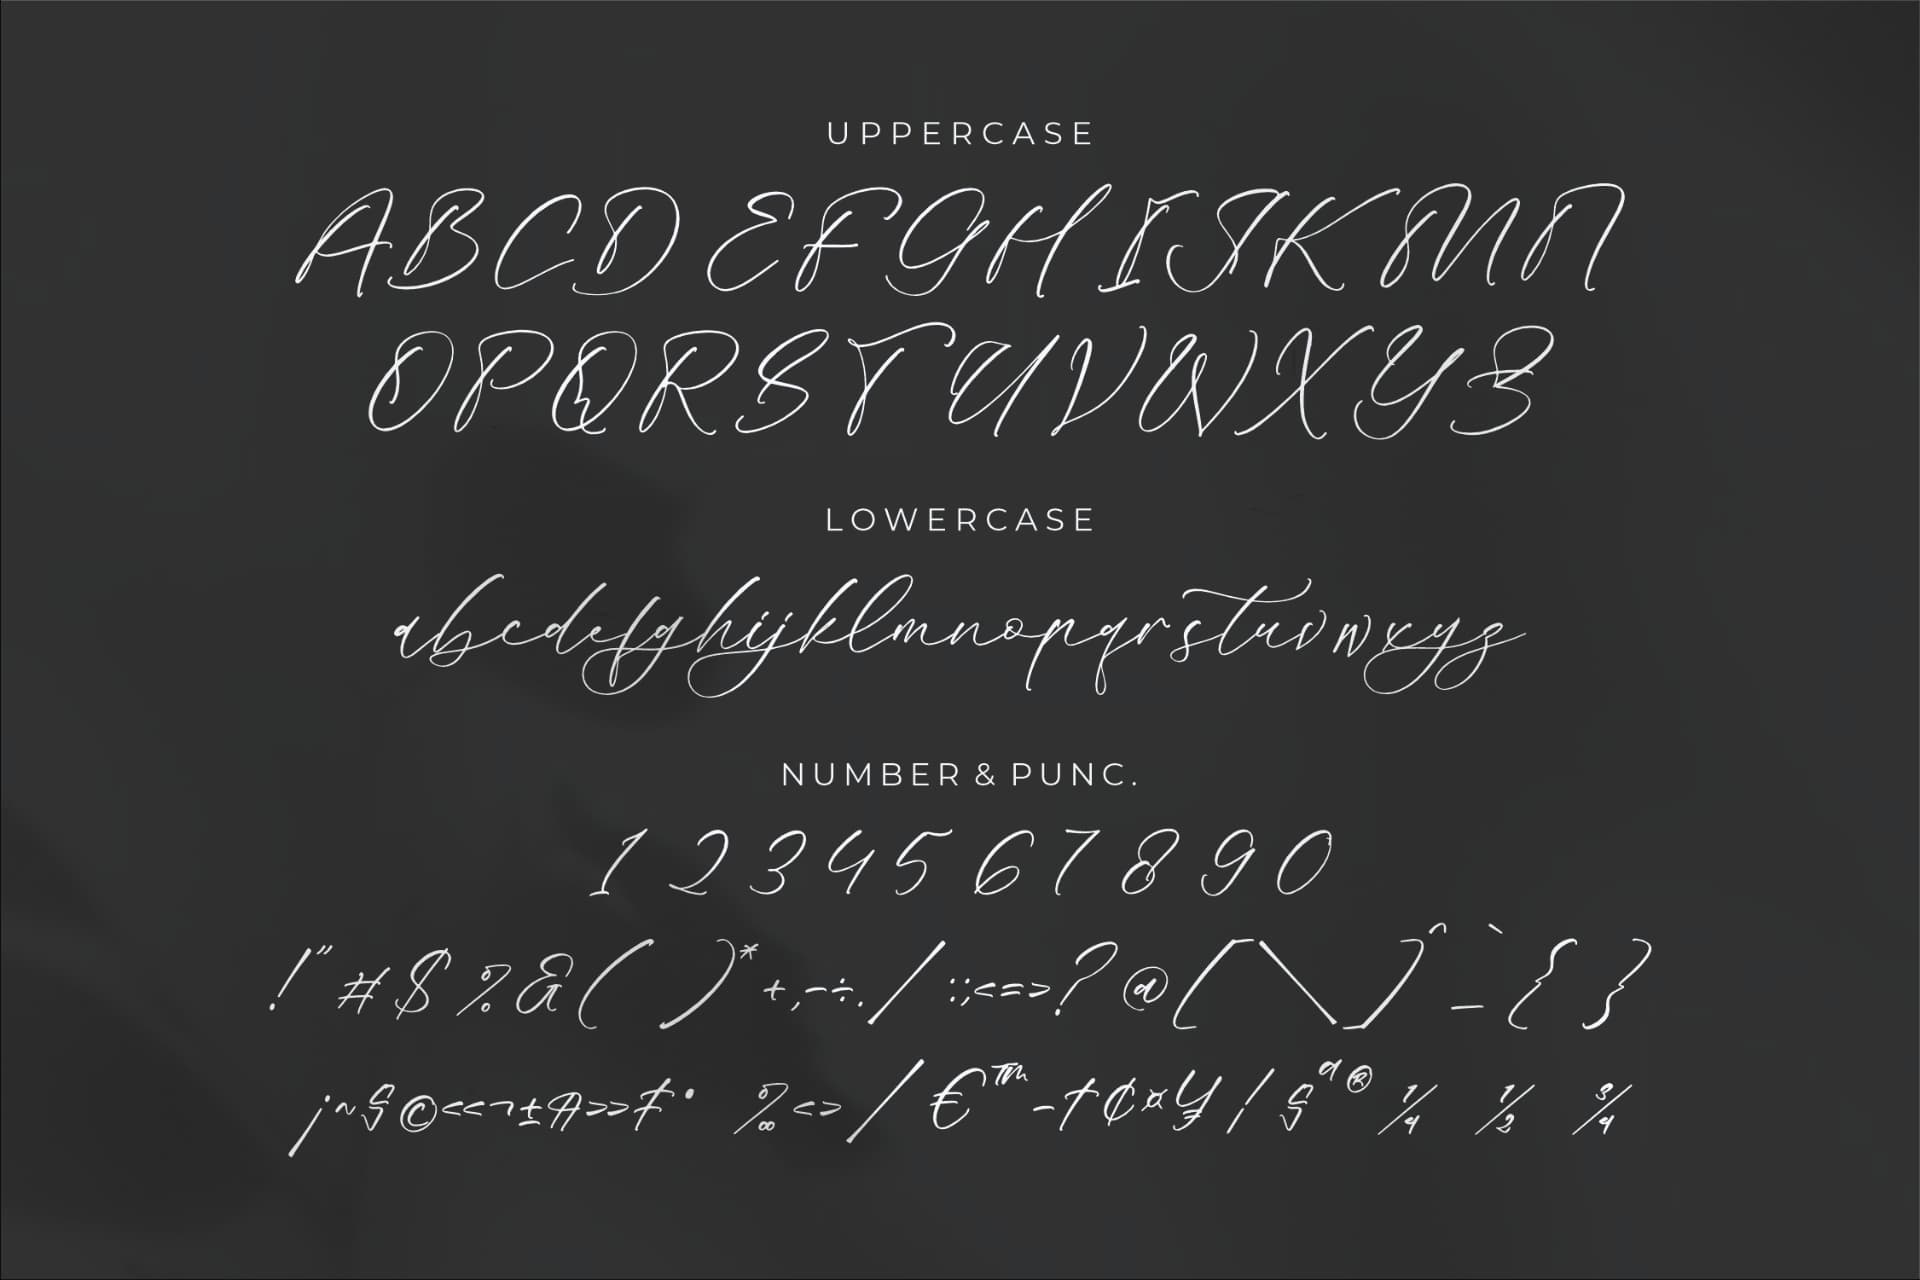 UPPERCASE
ABCD EFGH IJKMN
OPQRSTUVWXYZ
LOWERCASE
abcdefghijklmnopqrstuvwxyz
NUMBER & PUNC.
1 2 3 4 5 6 7 8 9 0
!"#$%&()*+,-÷./:;<=>?@[\]^_`{}
¡~§©«¬±»• ‰‹›/€™–†¢¤¥|§ª®¼ ½ ¾